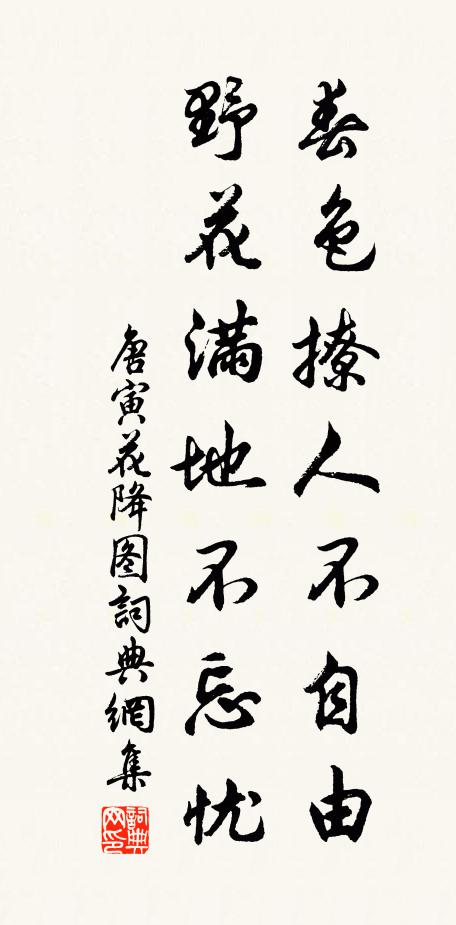 春色撩人不自由
野花满地不忘忧
唐寅花降图詞典網集
詞典网印